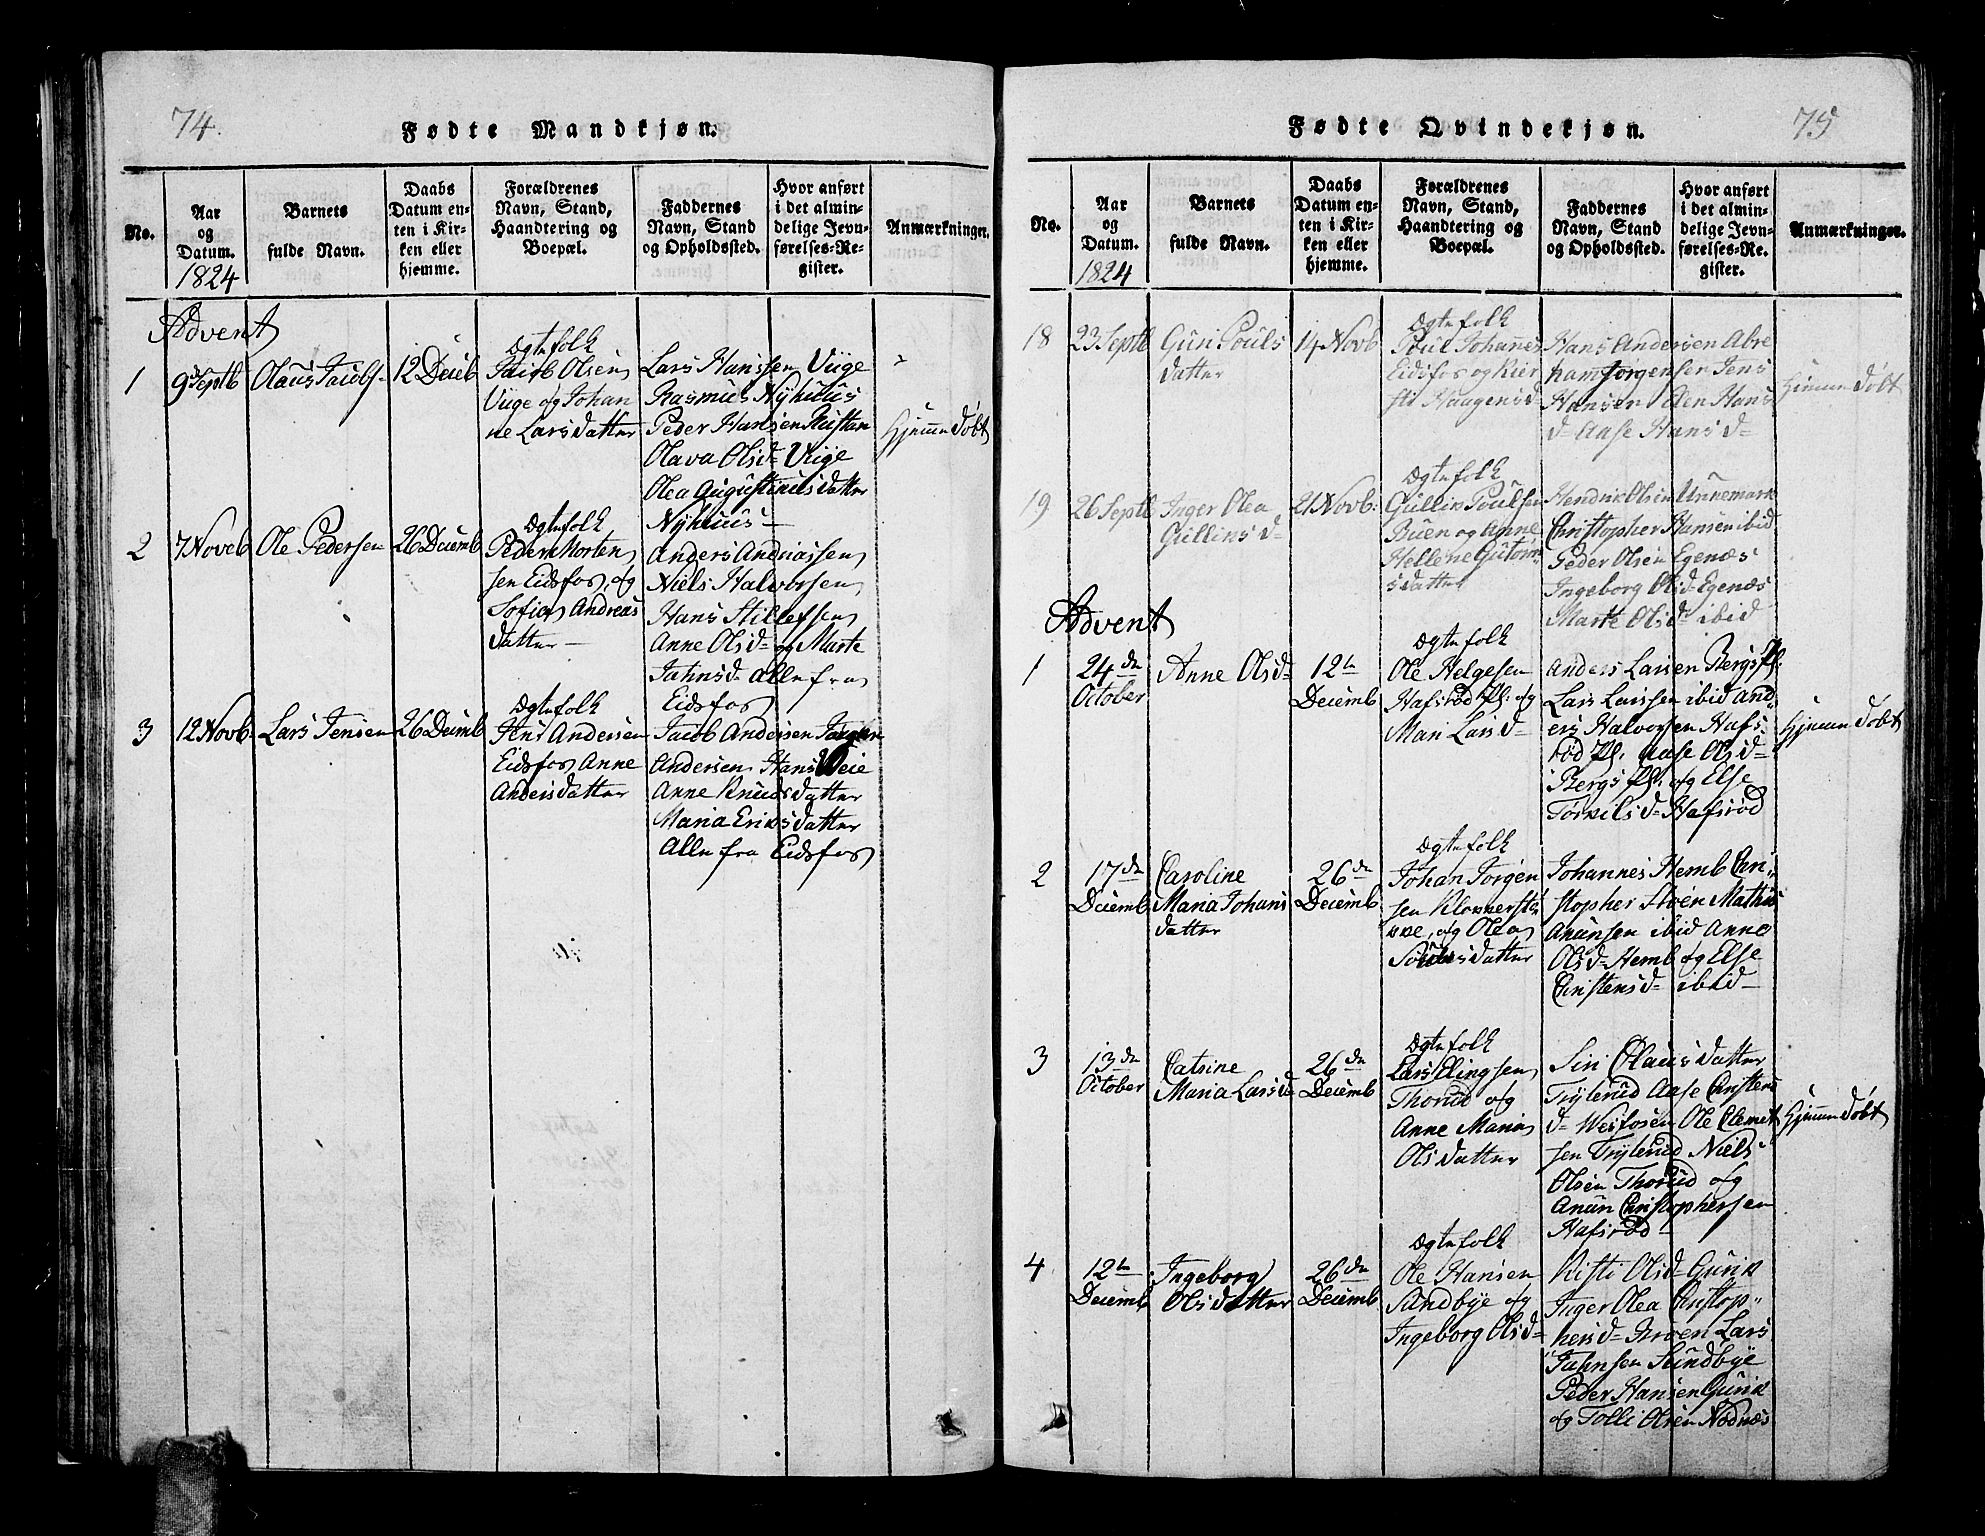 74.
Fødte Mandkjøn.
No.
Aar
og
Datum.
1824
Barnets
fulde Navn.
Daabs
Datum en-
ten i Kir-
ken eller
hjemme.
Forældrenes
Navn, Stand,
Haandtering og
Boepæl.
Faddernes
Navn, Stand
og Opholdssted.
Hvor anført
i det almin-
delige Jevn-
førelses-Re-
gister.
Anmærkninger.
Advent
1
9 Septb
Olaus Jacobs-
12 Decb
Ægtefolk
Jacob Olsen
Viige og Johan
ne Larsdatter
Lars Hanssen Viige
Rasmus Nyhuus
Peder Hansen
Olava Olsd- Viige
Olea Augustinusdatter
Nyhuus-
Hjemmedøbt
2
7 Noveb
Ole Pedersen
26 Decemb
Ægtefolk
Peder Morten
sen Eidsfos, og
Sofia Andreas
datter-
Anders Andriassen
Niels Halvorsen
Hans Stillefsen
Anne Olsd- og Marte
Jahnsd- alle fra
Eidsfos
3
12 Novb.
Lars Jensen
26 Decmb
Ægtefolk
Jens Andersen
Eidsfos Anne
Andersdatter
Jacob Andersen
Andersen Hans Weie
Anne Knudsdatter
Maria Eriksdatter
Alle fra Eidsfos
75
Fødte Qvindekjøn.
No.
Aar
og
Datum.
1824
Barnets
fulde Navn.
Daabs
Datum en-
ten i Kir-
ken eller
hjemme.
Forældrenes
Navn, Stand,
Haandtering og
Boepæl.
Faddernes
Navn, Stand
og Opholdssted.
Hvor anført
i det almin-
delige Jevn-
førelses-Re-
gister.
Anmærkninger.
18
23 Septb
Guri Pouls
datter
14 Novb
Ægtefolk
Poul Johannes
Eidsfos og Kier
sti Haagensd-
Hans Andersen Abre
ham Jørgensen Jens
Hansen Hans
d- Aase Hansd-
Hjemmedøbt
19
26 Septb
Inger Olea
Gullinsd-
21 Novb:
Ægtefolk
Gullin Poulsen
Buen og Anne
Hellene Gutorm
sdatter
Hendrik Olsen Unnemark
Christopher Hansen ibid
Peder Olsen Egenæs
Ingeborg Olsd- Egenæs
Marte Olsd- ibid
Advent
1
24de
October
Anne Olsd-
12te
Decemb
Ægtefolk
Ole Helgesen
Hafsrød Pl. og
Mari Larsd-
Anders Larsen Bergs Pl.
Lars Larssen ibid And-
ers Halvorsen Hafs-
rød Pl. Aase Olsd-
Bergs Pl. og Else
Torkilsd- Hafsrød
Hjemmedøbt
2
17de
Decemb
Caroline
Maria Johans
datter
26de
Decemb
Ægtefolk
Johan Jørgen
sen Klokkerstø
kke, og Olea
datter
Johannes Hemb Chri-
stopher Mathis
Anunsen ibid Anne
Olsd- Hemb og Else
Christensd- ibid-
3
13de
October
Catrine
Maria Larsd
26de
Decemb
Ægtefolk
Lars Elingsen
Thorud og
Anne Maria
Olsdatter
Siri Olausdatter
Trylerud Aase Christens
d- Wesfosen Ole Clemet
sen Trylerud Niels
Olsen Thorud og
Anun Christophersen
Hafsrød-
Hjemmedøbt
4
12te
Decemb
Ingeborg
Olsdatter
26de
Decemb
Ægtefolk
Ole Hansen
Sandbye og
Ingeborg Olsd-
Kisti Olsd- Gurik
Inger Olea Christop-
hersd- Lars
Jahnsen Sundbye
Peder Hansen Gurik
og Tolli Olsen Nødnæs